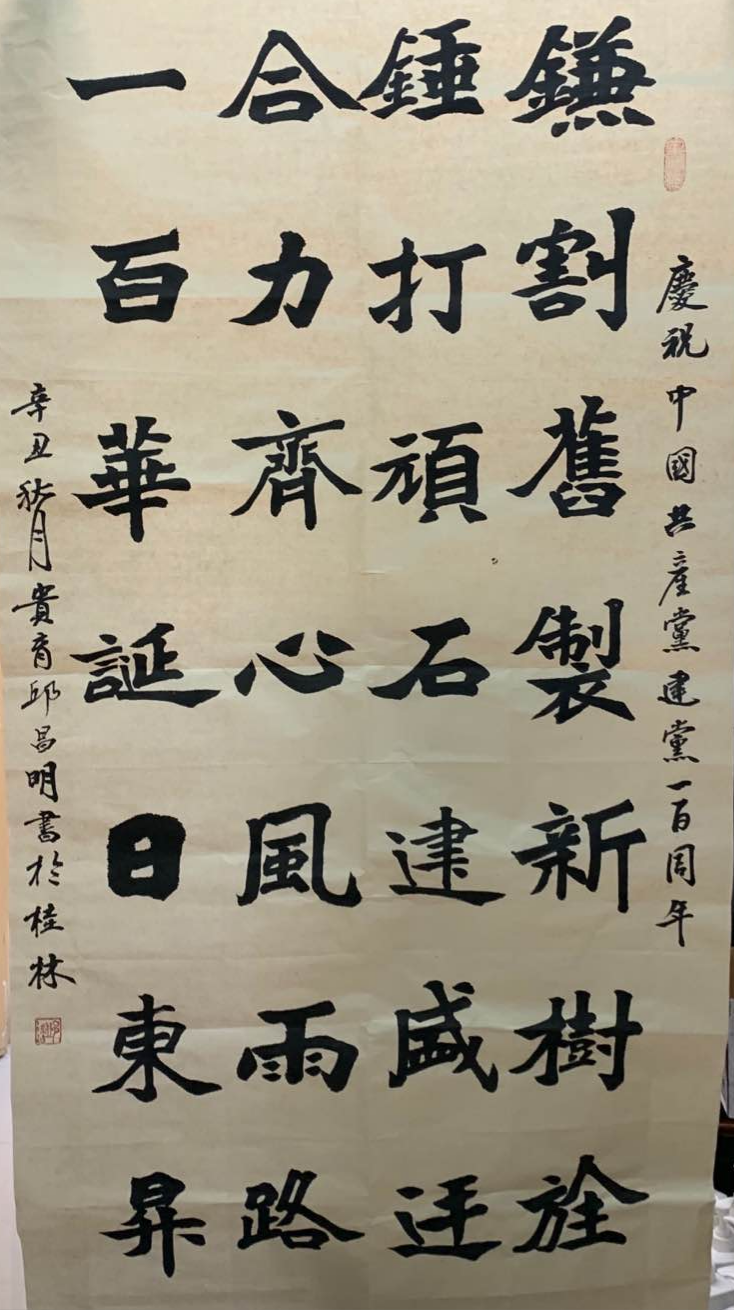 慶祝中國共產黨建黨一百周年
鎌割舊製新樹旌
錘打頑石建盛廷
合力齊心風雨路
一百華誕日東昇
辛丑秋月貴育邱昌明書於桂林